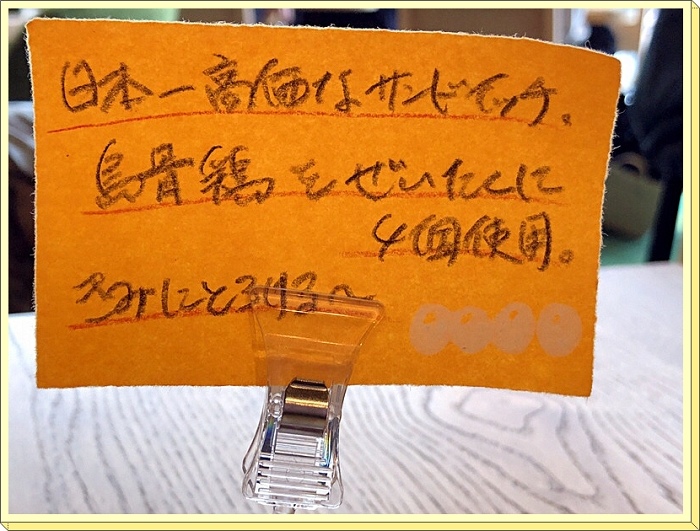 日本一高価なサンドイッチ。
烏骨鶏をぜいたくに
4個使用。
にとろける〜